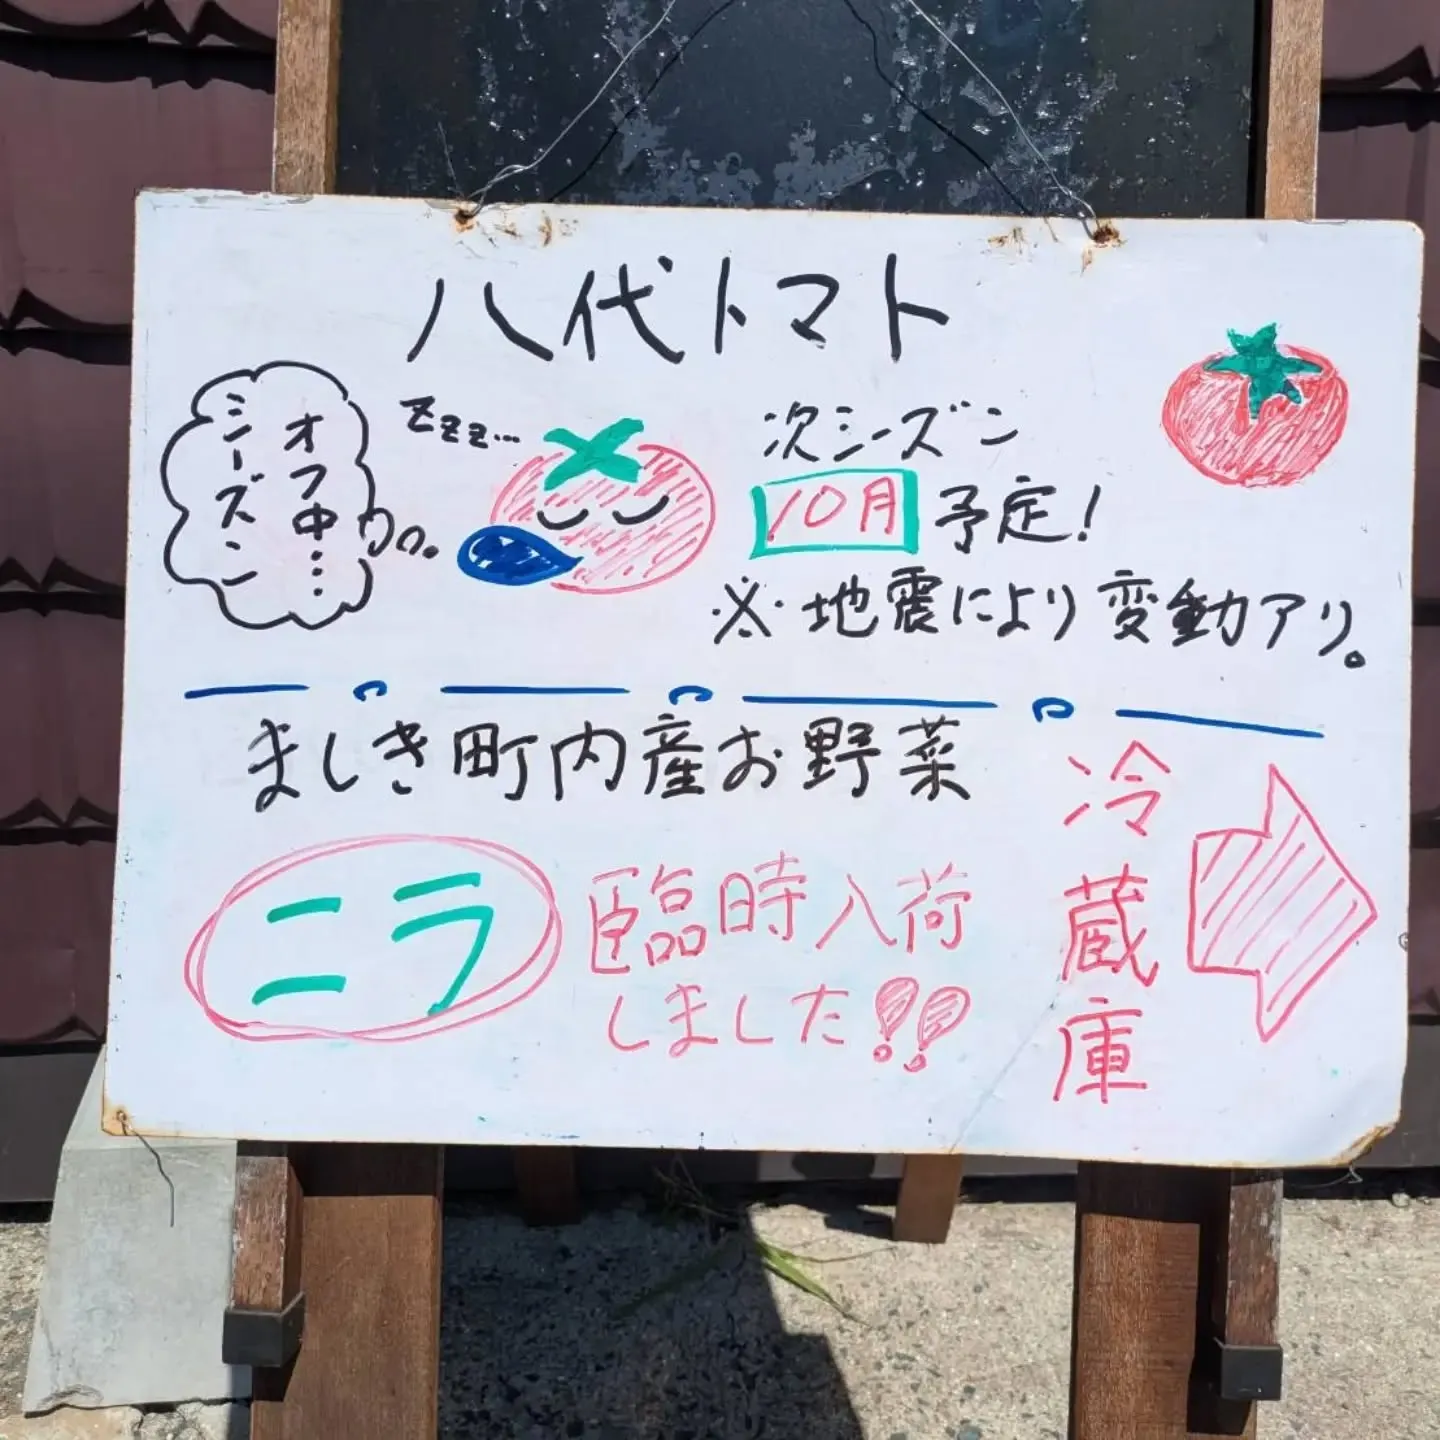 八代トマト
シーズン
オフ中…
zzz…
次シーズン
10月予定!
※地震により変動アリ。
ましき町内産お野菜
ニラ
臨時入荷
しました!!
冷蔵庫